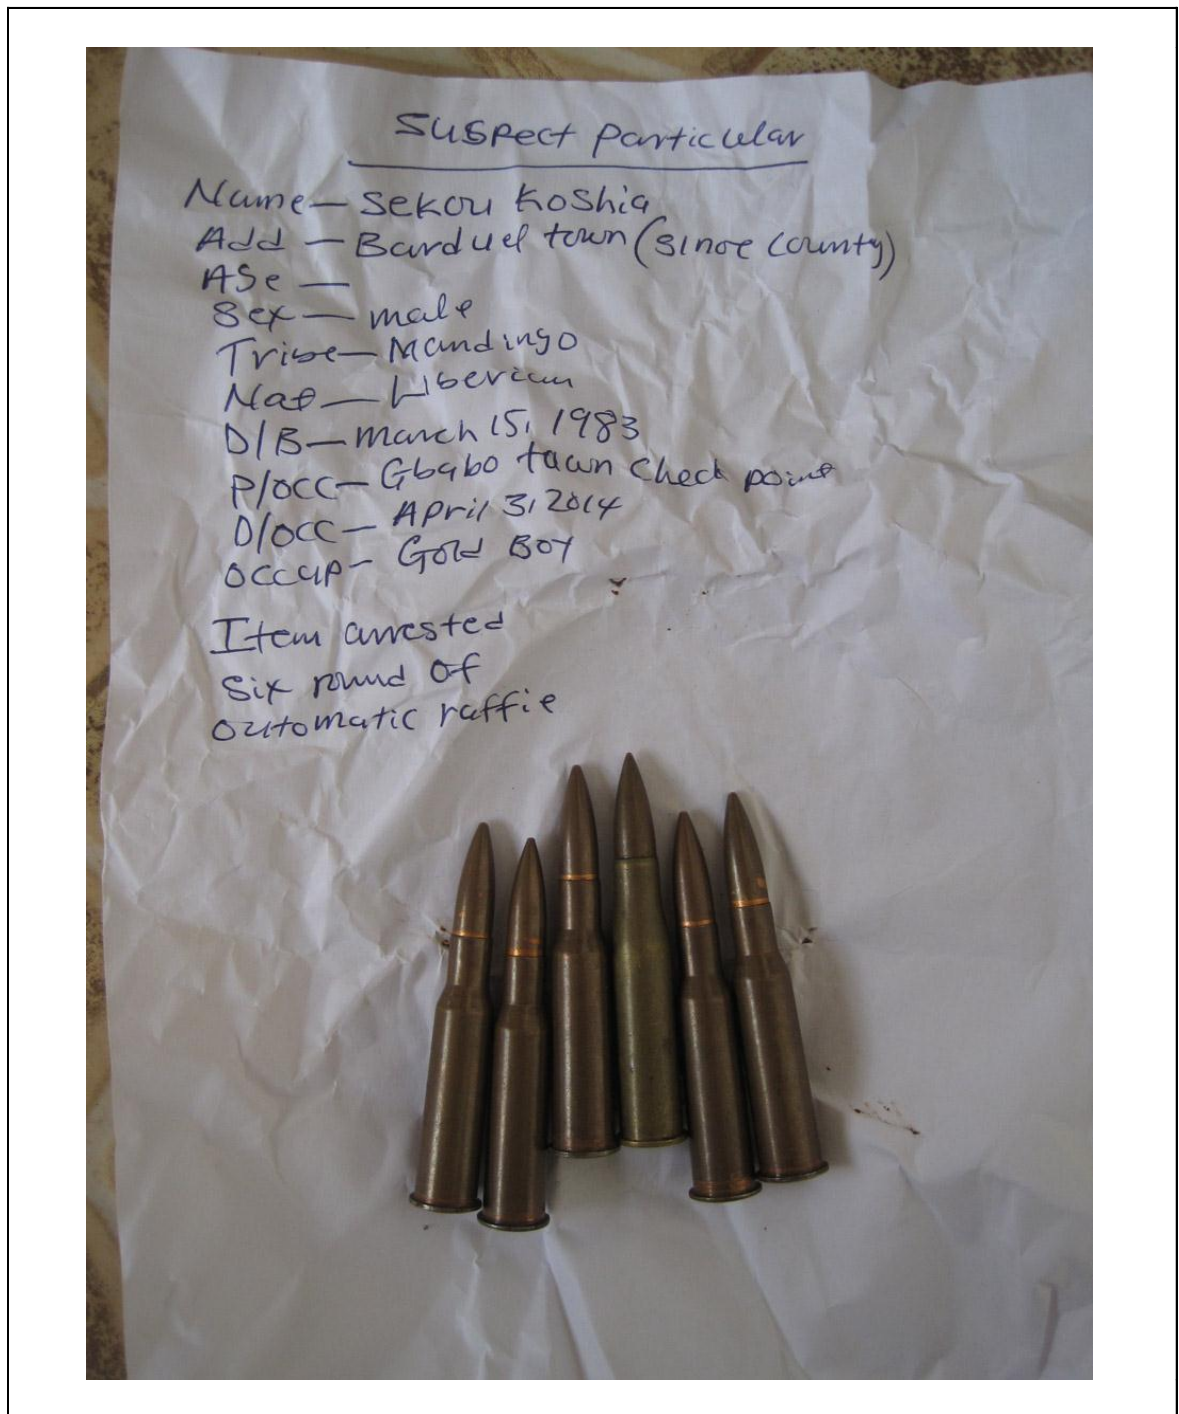 Suspect Particular
Name — Sekou Koshia
Add — Barduel town (Sinoe County)
Age —
Sex — male
Tribe — Mandingo
Nat — Liberian
D/B — March 15, 1983
P/OCC — Gbabo tawn Check point
D/OCC — April 3, 2014
Occup — Gold Boy
Item arrested
Six round of
automatic raffie